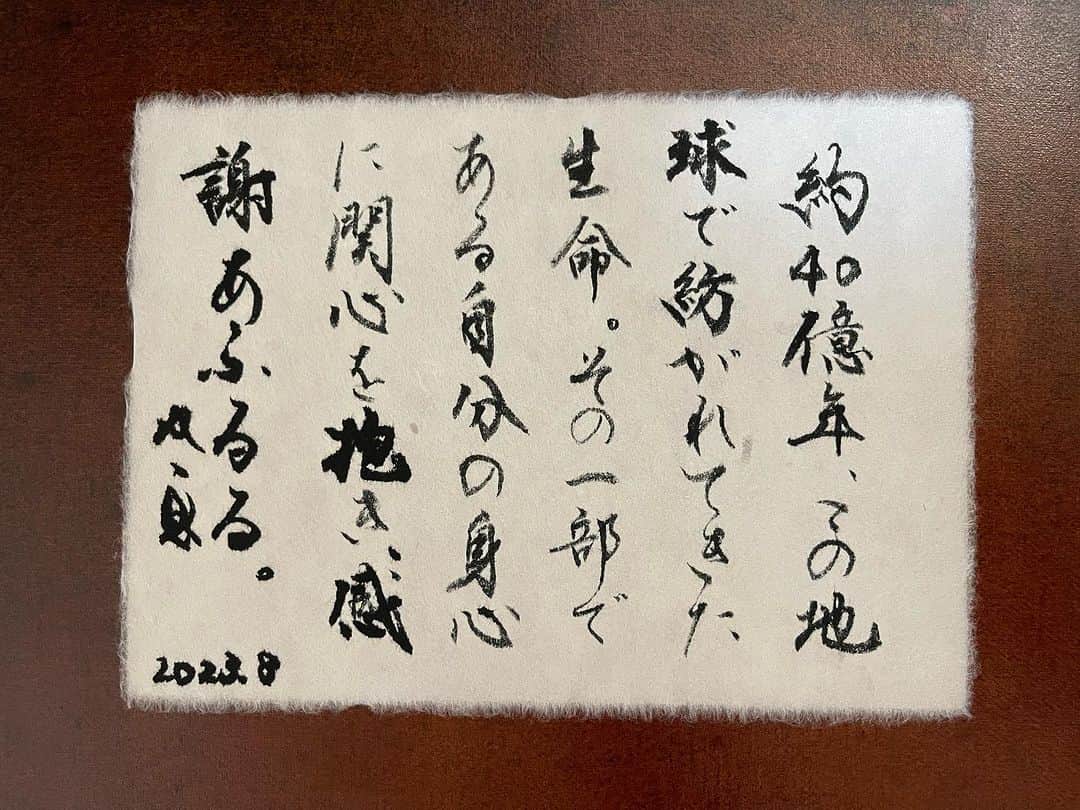 約40億年、この地
球で紡がれてきた
生命。その一部で
ある自分の身心
に関心を抱き、感
謝あふるる。
2023.8